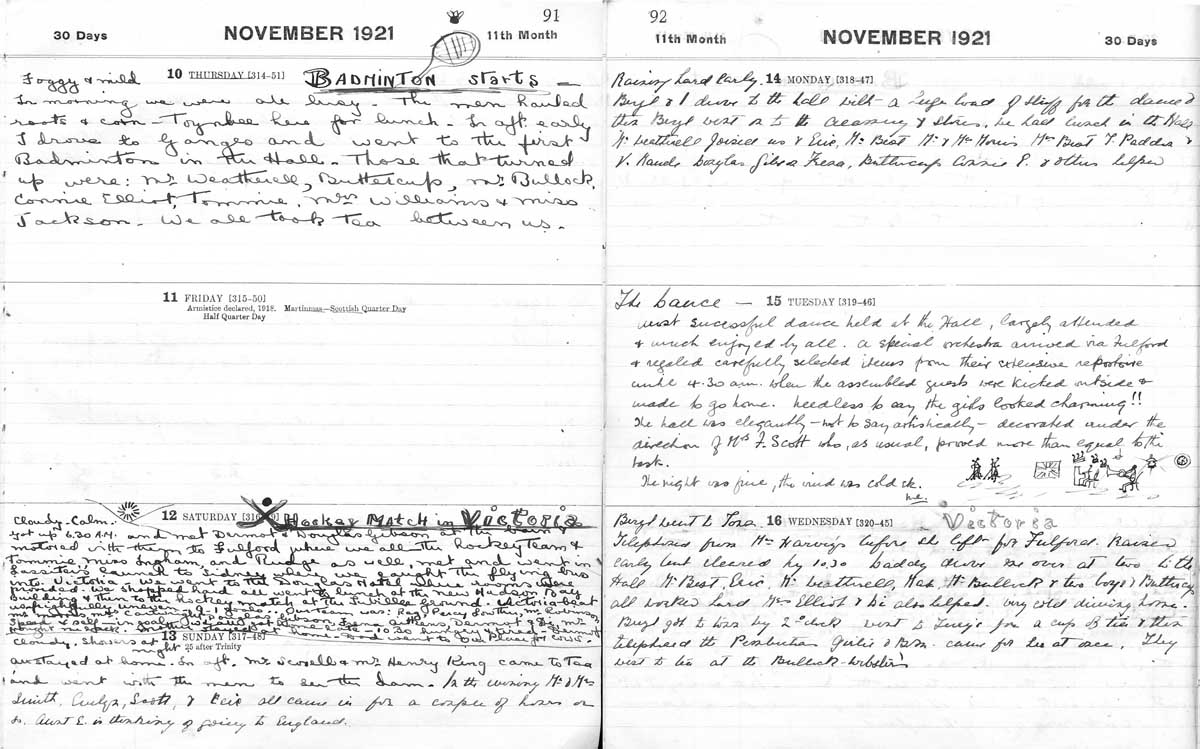 91
30 Days
NOVEMBER 1921
11th Month
Foggy & mild
10 THURSDAY [314-51]
BADMINTON starts —
In morning we were all busy - The men hauled
roots & corn - Toynbee here for lunch. In aft. early
I drove to Ganges and went to the first
Badminton in the Hall. Those that turned
up were: Mr Weatherell, Buttercup, Mr Bullock,
Connie Elliot, Tommie, Mrs Williams & Miss
Jackson. We all took tea between us.
11 FRIDAY [315-50]
Armistice declared, 1918. Martinmas—Scottish Quarter Day
Half Quarter Day
Cloudy - Calm.
12 SATURDAY
Hockey Match in Victoria
Got up 6.30 A.M. and met Dermot & Douglas Gibson at the
motored with them to Fulford where we all the hockey team &
Tommie, Miss Ingham, and Rudge as well, met and went in
launch to Sidney then we caught the flying bus
into Victoria. We went to the Douglas Hotel where rooms were
provided. We shopped hard all went to lunch at the new Hudson Bay
building & then to the hockey match at the Jubilee Ground. Victoria beat
13 SUNDAY [317-48]
25 after Trinity
Cloudy, showers at night
all stayed at home. In aft. Mr Scovell & Mr Henry King came to tea
and went with the men to see the dam. In the evening Mr & Mrs
Smith, Evelyn, Scott, & Eric all came in for a couple of hours or
so. Aunt E. is thinking of going to England.
92
11th Month
NOVEMBER 1921
30 Days
Raining hard early.
14 MONDAY [318-47]
Beryl & I drove to the hall with a huge load of stuff for the dance &
then Beryl went on to the Creamery & stores. We had lunch in the Hall
Mr Weatherell joined us & Eric, Mr Best Mr & Mrs Morris Mrs Best
Buttercup & others helped
The Dance —
15 TUESDAY [319-46]
most sucessful dance held at the Hall, largely attended
& much enjoyed by all. A special orchestra arrived via Fulford
& regaled carefully selected items from their extensive repertoire
until 4.30 a.m. when the assembled guests were kicked outside &
made to go home. Needless to say the girls looked charming!!
The hall was elegantly - not to say artistically - decorated under the
direction of Mrs F. Scott who, as usual, proved more than equal to the
task.
The night was fine, the wind was cold ck.
me.
Beryl went to Town
16 WEDNESDAY [320-45]
Victoria
Telephoned from Mrs Harvey's before she left for Fulford. Rained
early but cleared by 10.30 Daddy drove me over at two to the
Hall Mr Best, Eric, Mr Weatherell, Mr Bullock & two boys & Buttercup
all worked hard Mrs Elliot & Di also helped. Very cold driving home.
Beryl got to town by 2 o'clock went to for a cup of tea & then
telephoned the came for her at once. They
went to tea at the Bullock-Websters